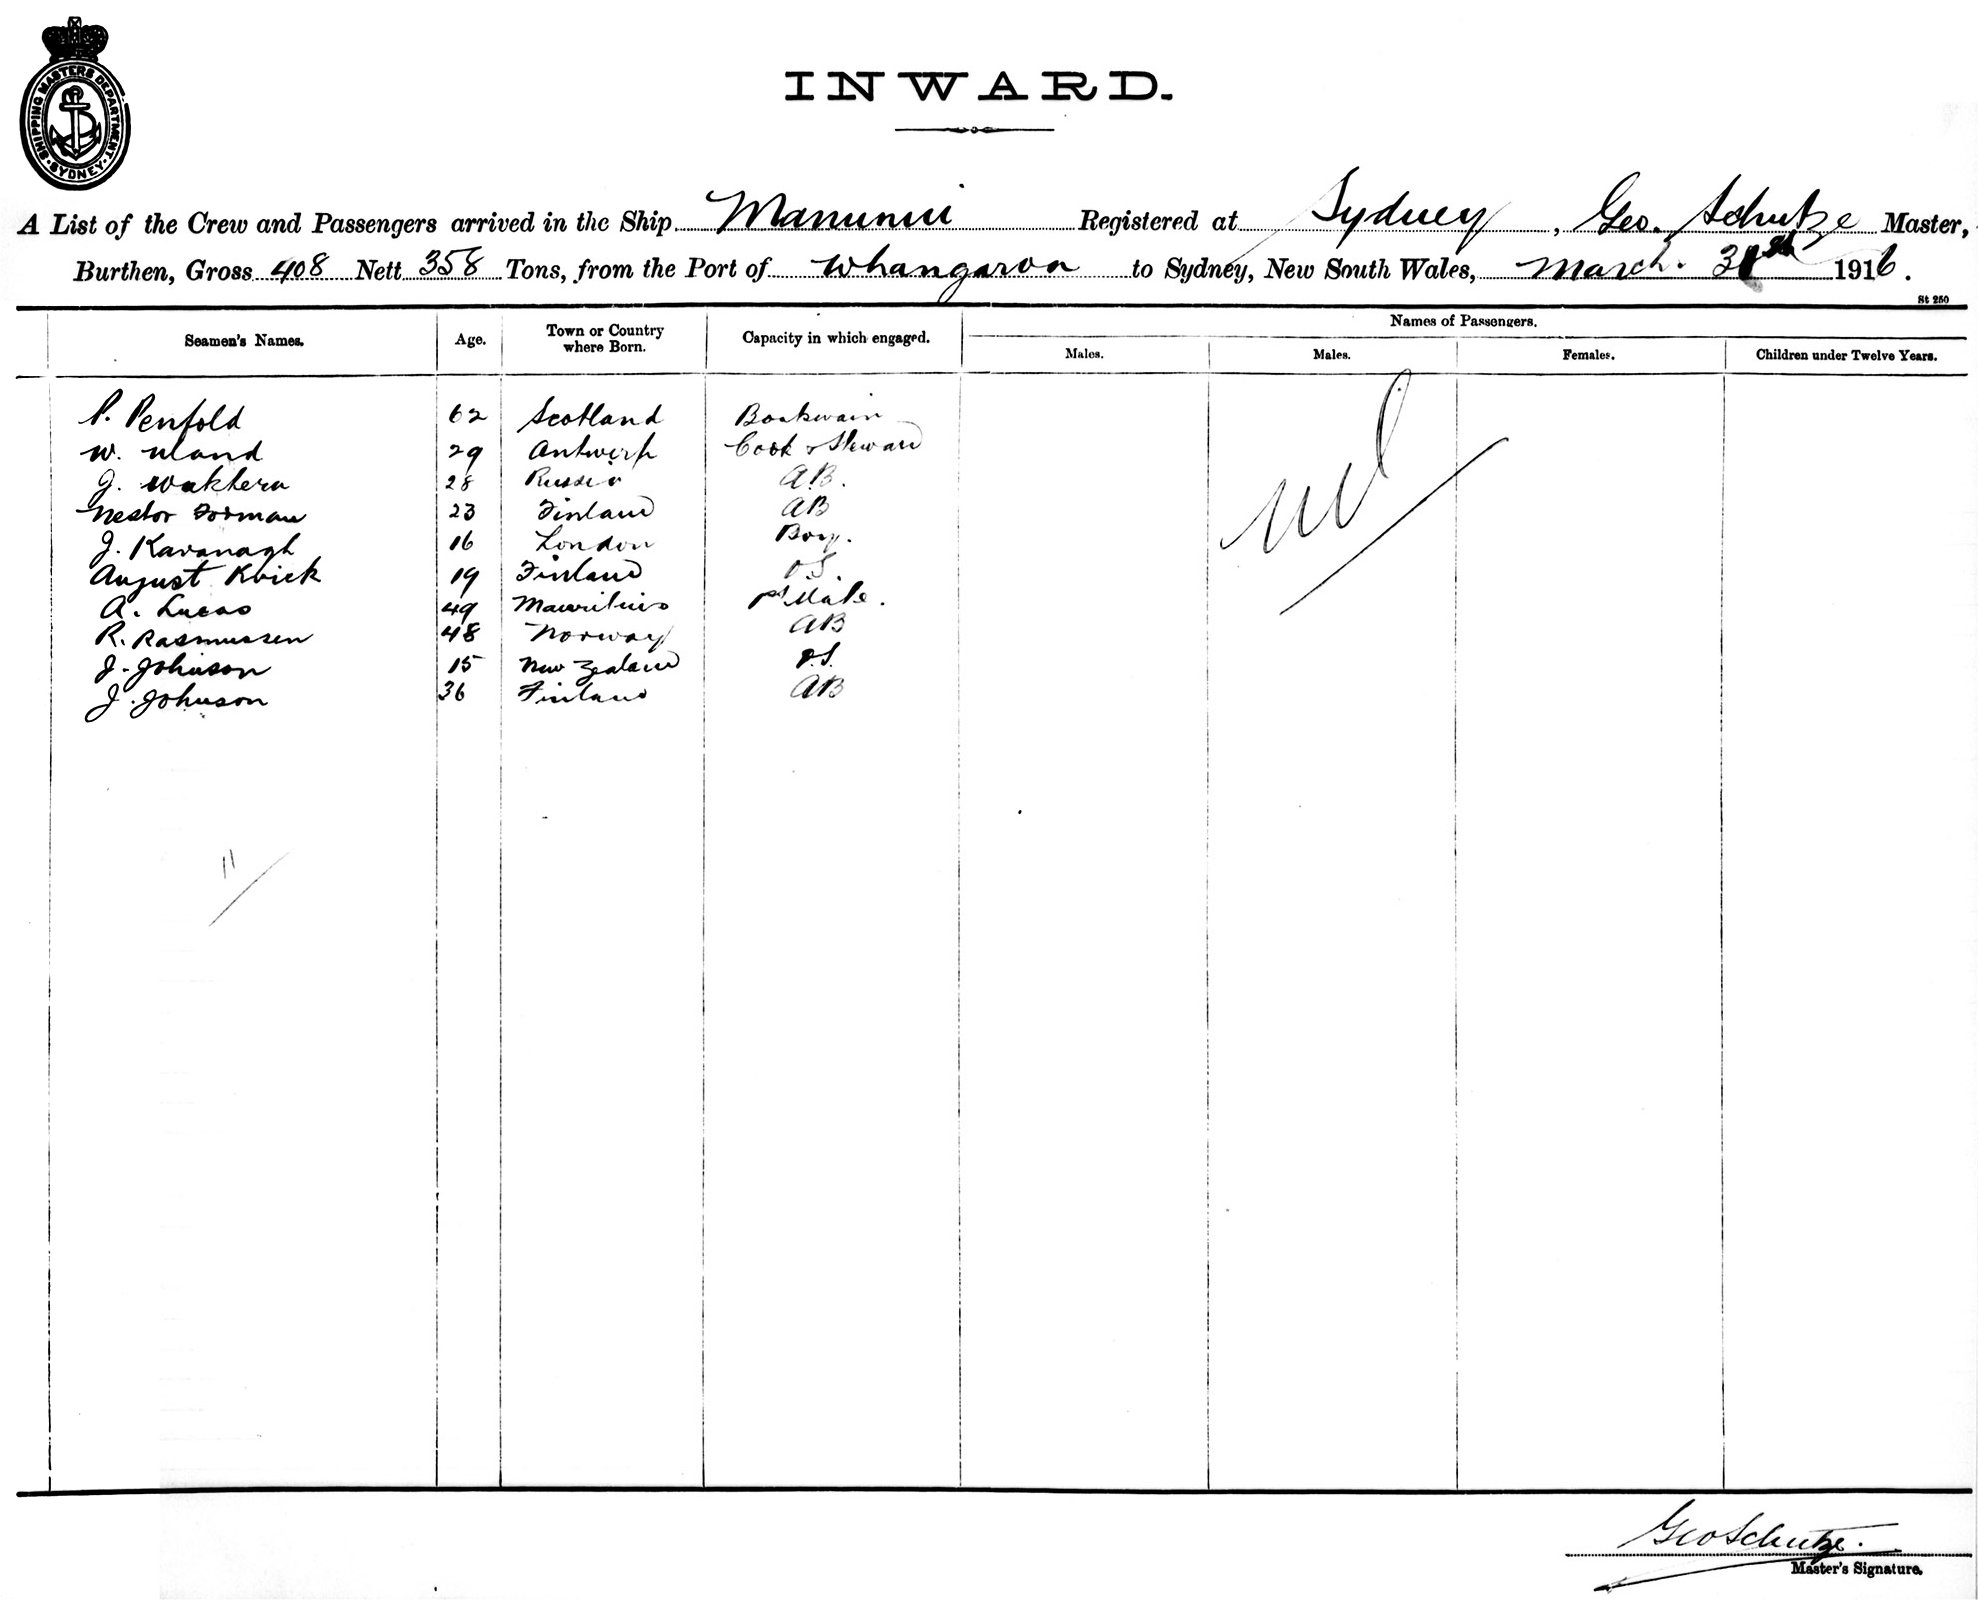 SHIPPING MASTERS DEPARTMENT · SYDNEY ·
INWARD.
A List of the Crew and Passengers arrived in the Ship Manunui Registered at Sydney, Geo. Schutze Master,
Burthen, Gross 408 Nett 358 Tons, from the Port of Whangaroa to Sydney, New South Wales, March. 1916.
St 250
Names of Passengers.
Seamen's Names. Age. Town or Country where Born. Capacity in which engaged. Males. Males. Females. Children under Twelve Years.
P. Penfold 62 Scotland Boatswain
W. Uland 29 Antwerp Cook & Steward
J. 28 Russia A.B.
Nestor Forman 23 Finland AB
J. Kavanagh 16 London Boy.
August Kvick 19 Finland O.S.
A. Lucas 49 Mauritius 1st Mate.
R. Rasmussen 48 Norway AB
J. Johnson 15 New Zealand O.S.
J. Johnson 36 Finland AB
nil
11
Geo Schutze.
Master's Signature.